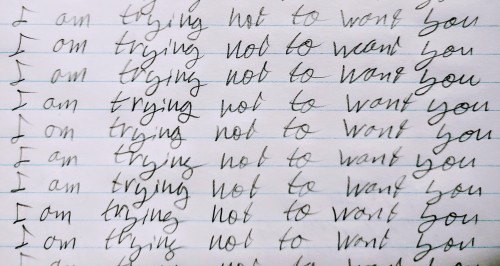 I am trying not to want you
I am trying not to want you
I am trying not to want you
I am trying not to want you
I am trying not to want you
I am trying not to want you
I am trying not to want you
I am trying not to want you
I am trying not to want you
I am trying not to want you